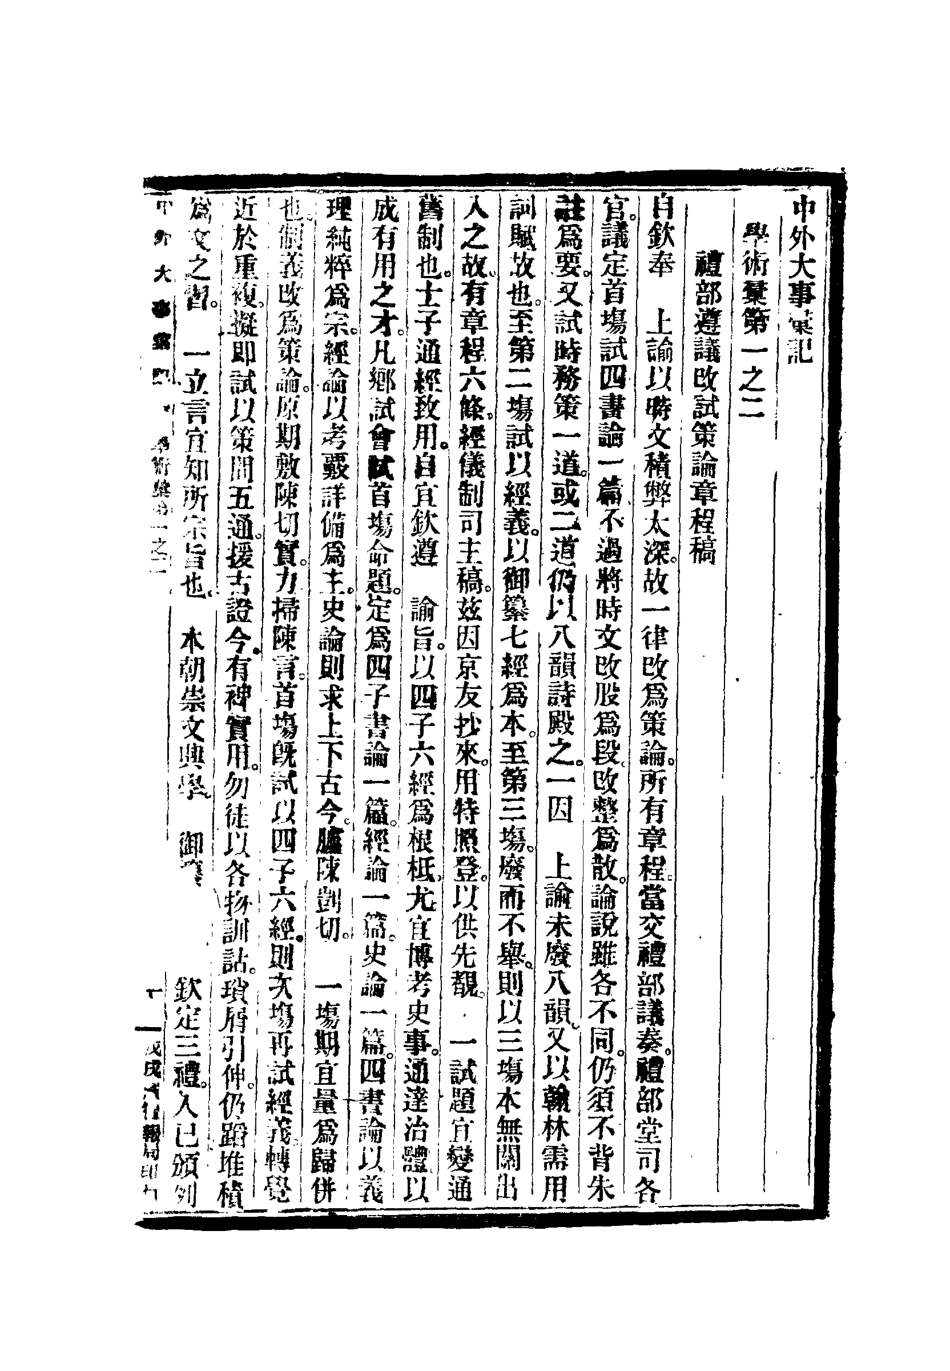 中外大事彙記
學術彙第一之二
禮部遵議改試策論章程稿
自欽奉　上諭以時文積弊太深。故一律改爲策論。所有章程。當交禮部議奏。禮部堂司各
官。議定首塲試四書論一篇。不過將時文改股爲段。改整爲散。論說雖各不同。仍須不背朱
註爲要。又試時務策一道。或二道。仍以八韻詩殿之。一因　上諭未廢八韻。又以翰林需用
詞賦故也。至第二塲試以經義。以御纂七經爲本。至第三塲。廢而不舉。則以三塲本無關出
入之故。故有章程六條。經儀制司主稿。茲因京友抄來。用特照登。以供先覩。　一試題宜變通
舊制也。士子通經致用。自宜欽遵　諭旨。以四子六經爲根柢。尤宜博考史事。通達治體。以
成有用之才。凡鄉試會試首塲命題。定爲四子書論一篇。經論一篇。史論一篇。四書論以義
理純粹爲宗。經論以考覈詳備爲主。史論則求上下古今。臚陳剴切。　一塲期宜量爲歸併
也。制義改爲策論。原期敷陳切實。力掃陳言。首塲旣試以四子六經。則次塲再試經義。轉覺
近於重複。擬即試以策問五通。援古證今。有裨實用。勿徒以各物訓詁。瑣屑引伸。仍蹈堆積
爲文之習。　一立言宜知所宗旨也。　本朝崇文興學。　御纂　欽定三禮。久已頒列
中外大事彙記　學術彙第一之二　一　戊戌　報局印